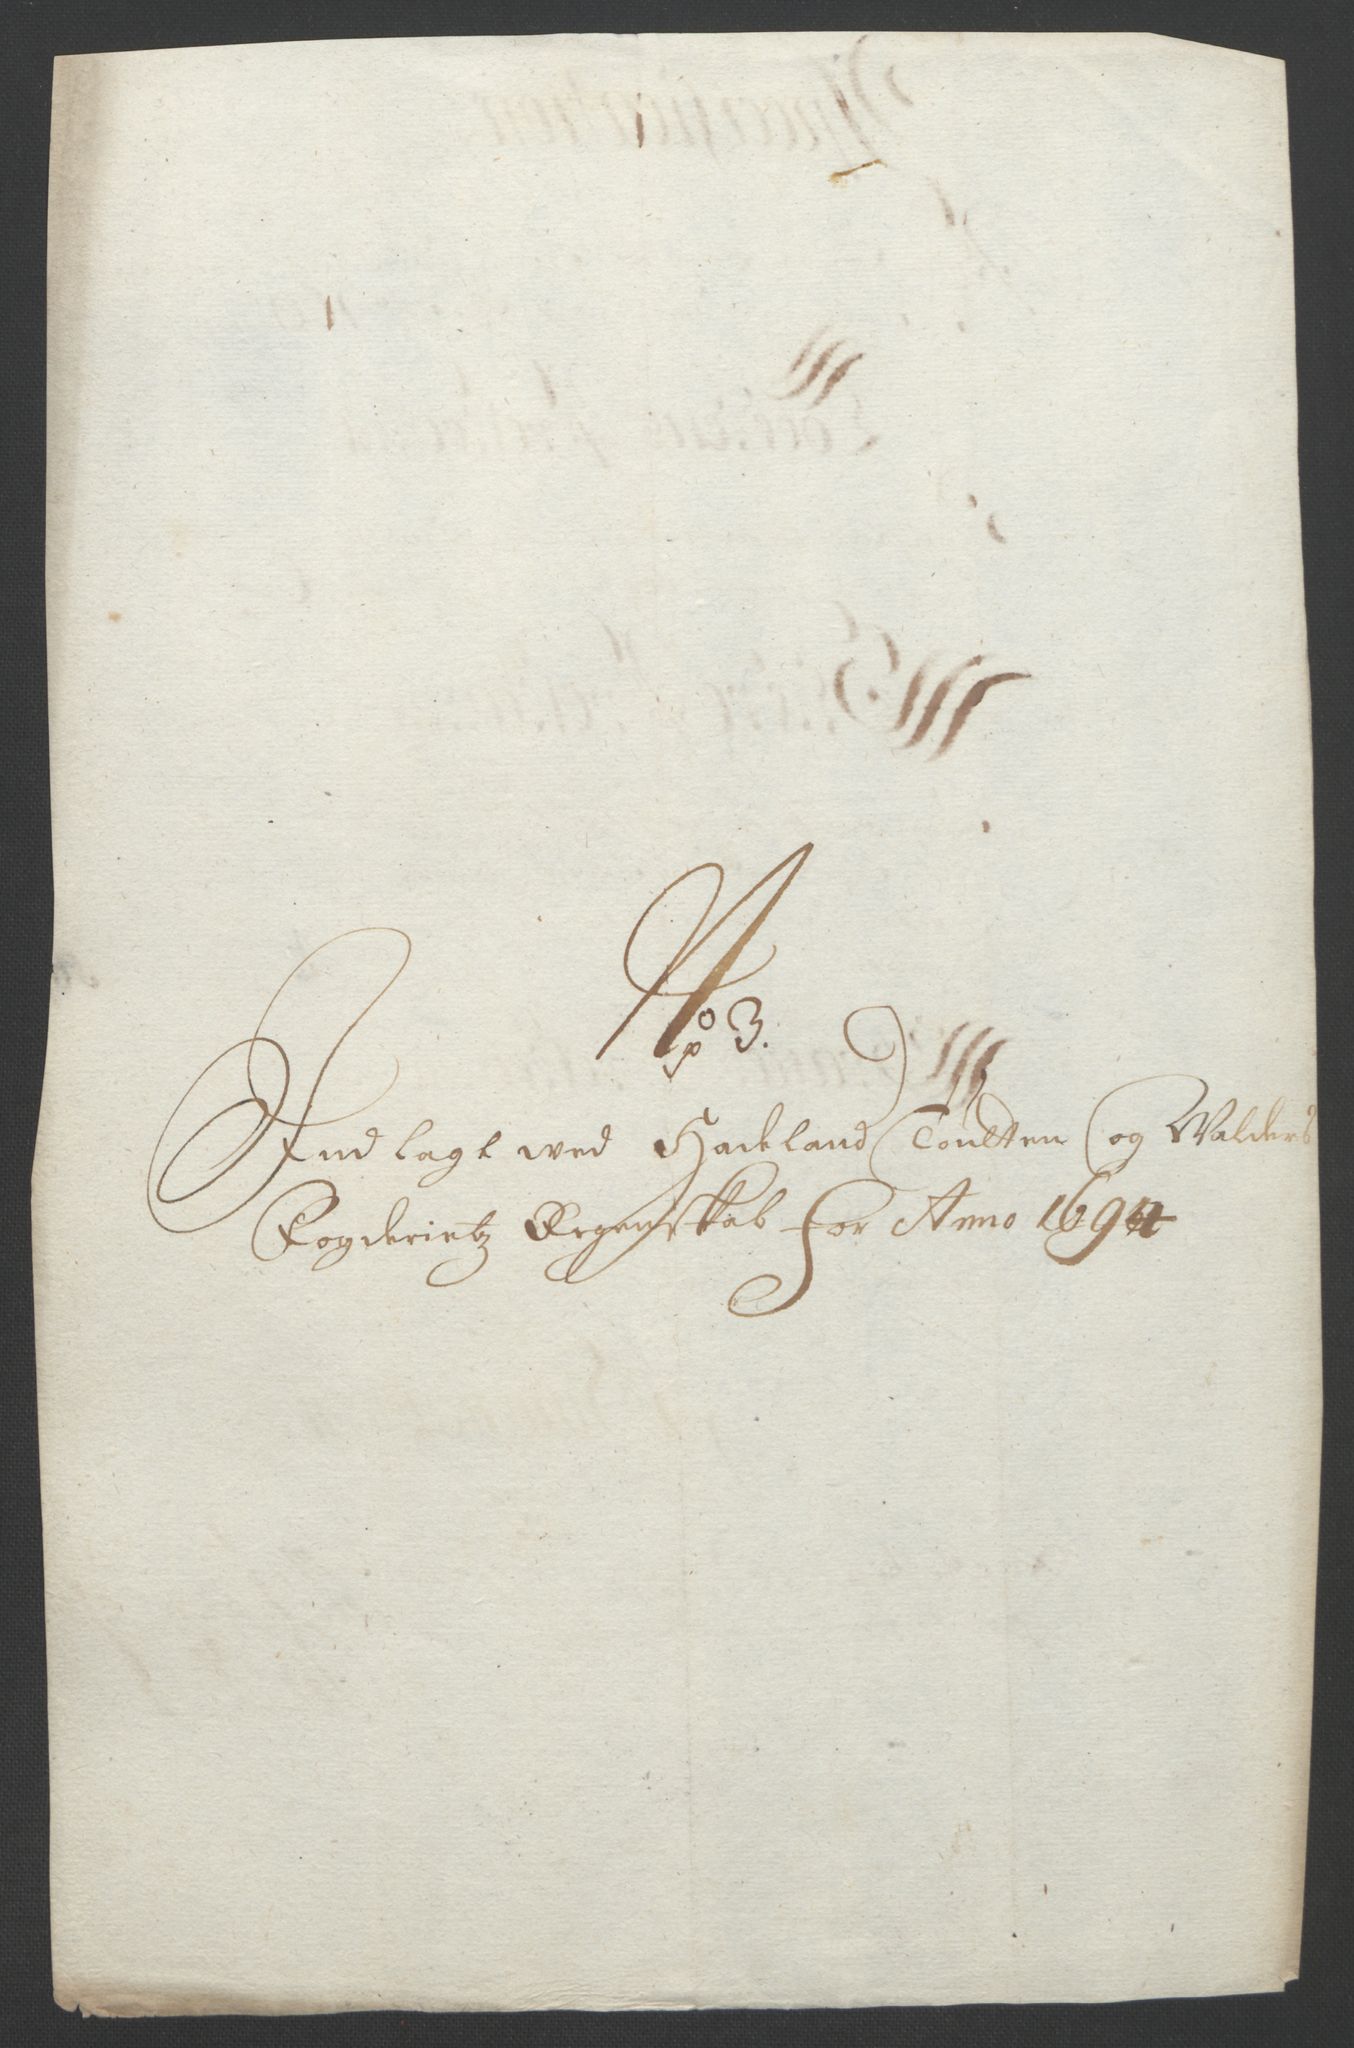 No 3.
Ind lagt wed Hadeland Toulten og Walders
Fogderietz Regenskab for Anno 1694